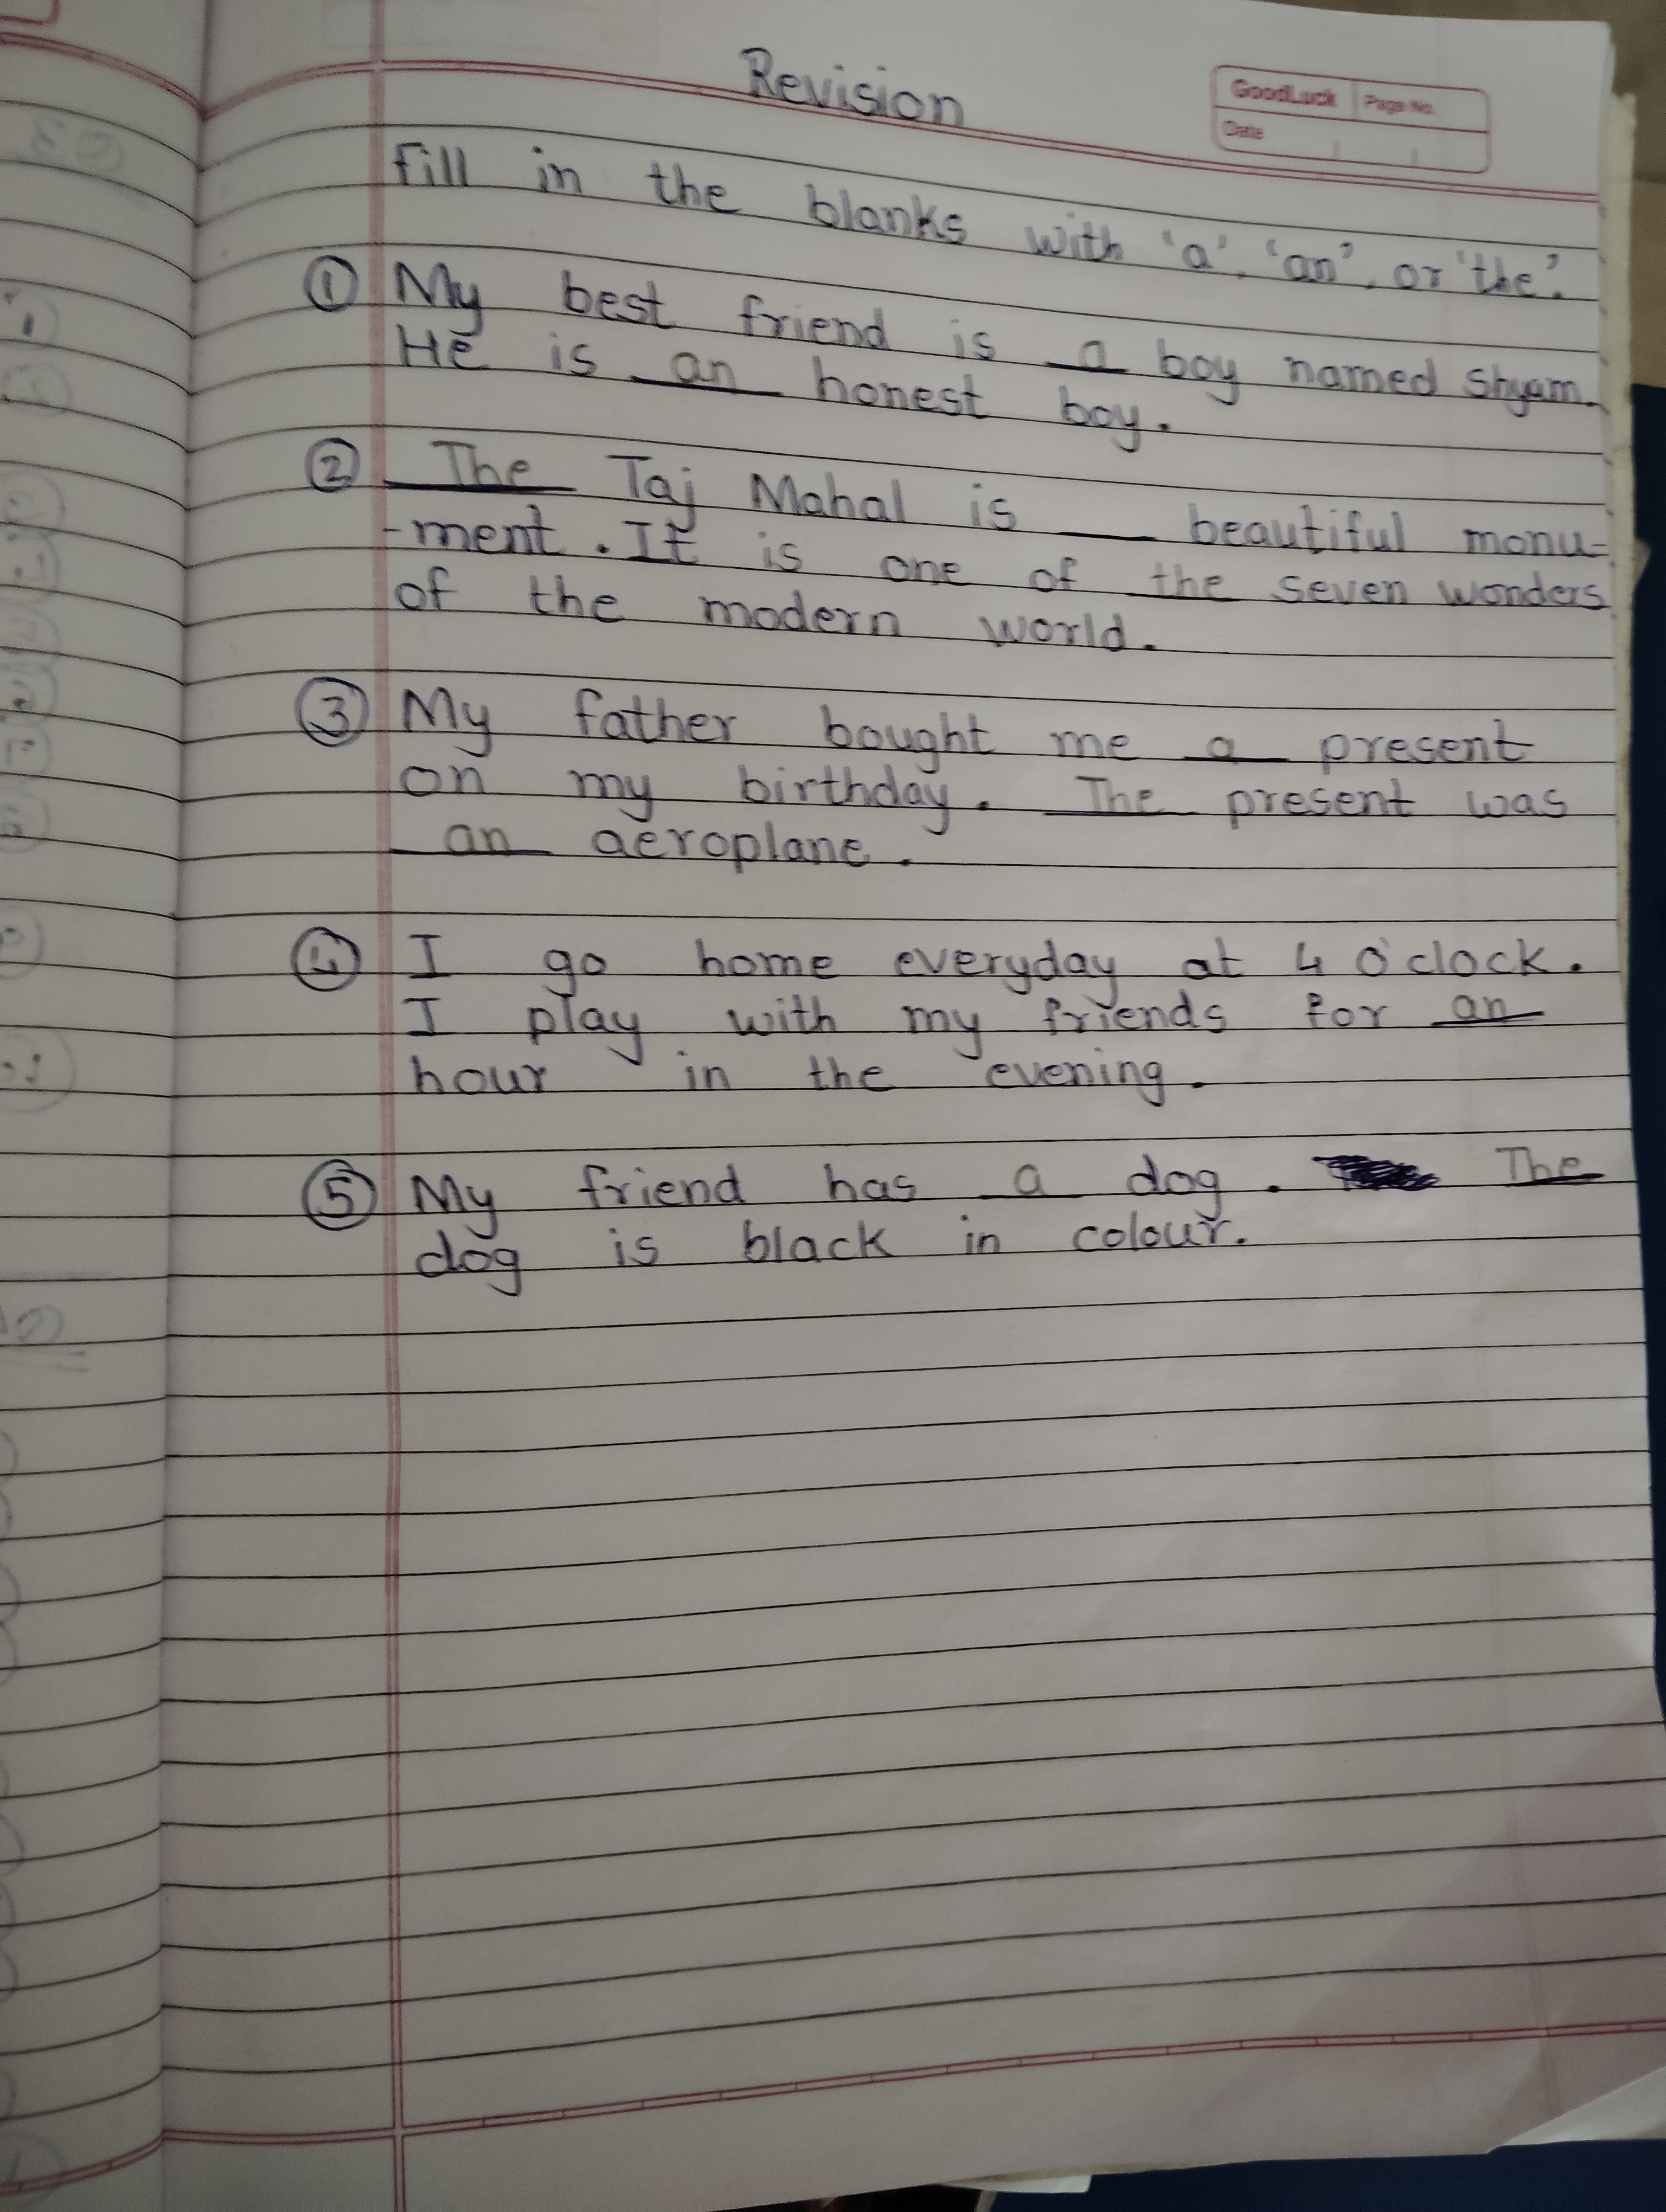 Revision
GoodLuck Page No.
Date
fill in the blanks with 'a', 'an', or 'the'.
① My best friend is a boy named Shyam.
He is an honest boy.
② The Taj Mahal is ___ beautiful monu-
-ment. It is one of the seven wonders
of the modern world.
③ My father bought me a present
on my birthday. The present was
an aeroplane.
④ I go home everyday at 4 o'clock.
I play with my friends for an
hour in the evening.
⑤ My friend has a dog. The
dog is black in colour.